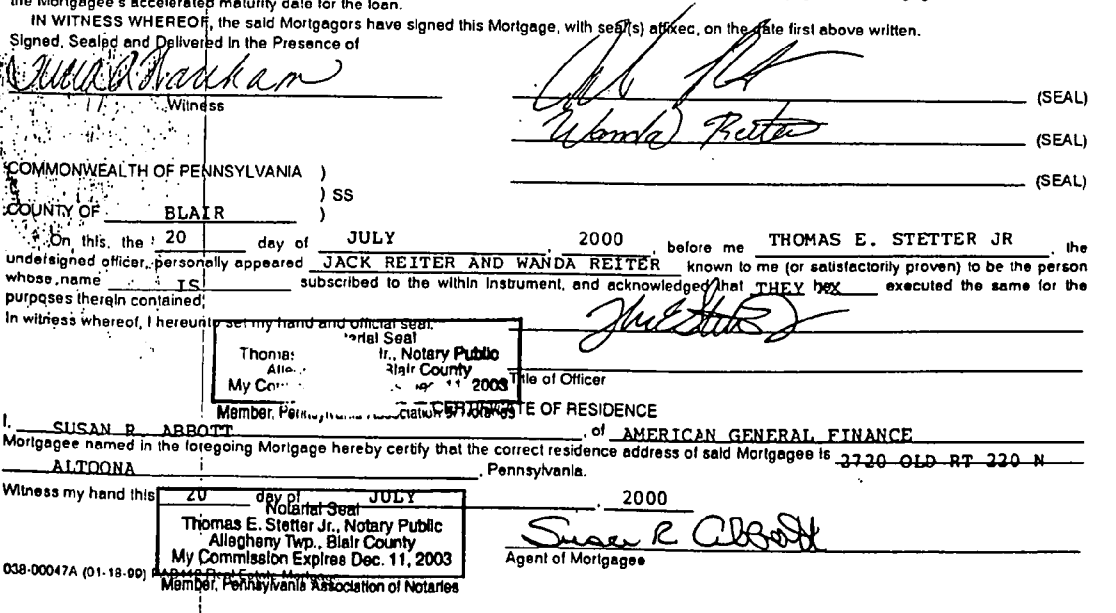 the Mortgagee's accelerated maturity date for the loan.
IN WITNESS WHEREOF, the said Mortgagors have signed this Mortgage, with seal(s) affixec, on the date first above written.
Signed, Sealed and Delivered in the Presence of
Witness
(SEAL)
Wanda Reiter (SEAL)
(SEAL)
COMMONWEALTH OF PENNSYLVANIA )
) SS
COUNTY OF BLAIR )
On this, the 20 day of JULY, 2000, before me THOMAS E. STETTER JR, the
undersigned officer, personally appeared JACK REITER AND WANDA REITER known to me (or satisfactorily proven) to be the person
whose name IS subscribed to the within instrument, and acknowledged that THEY hex executed the same for the
purposes therein contained.
In witness whereof, I hereunto set my hand and official seal.
Title of Officer
arial Seal
Thomas Jr., Notary Public
Alle Blair County
My Com 11 2003
Member, Pennsylvania Association
CERTIFICATE OF RESIDENCE
I, SUSAN R. ABBOTT, of AMERICAN GENERAL FINANCE
Mortgagee named in the foregoing Mortgage hereby certify that the correct residence address of said Mortgagee is 2720 OLD RT 220 N
ALTOONA, Pennsylvania.
Witness my hand this 20 day of JULY, 2000
Susan R Abbott
Agent of Mortgagee
Notarial Seal
Thomas E. Stetter Jr., Notary Public
Allegheny Twp., Blair County
My Commission Expires Dec. 11, 2003
Member, Pennsylvania Association of Notaries
038-00047A (01-18-99) Real Estate Mortgage